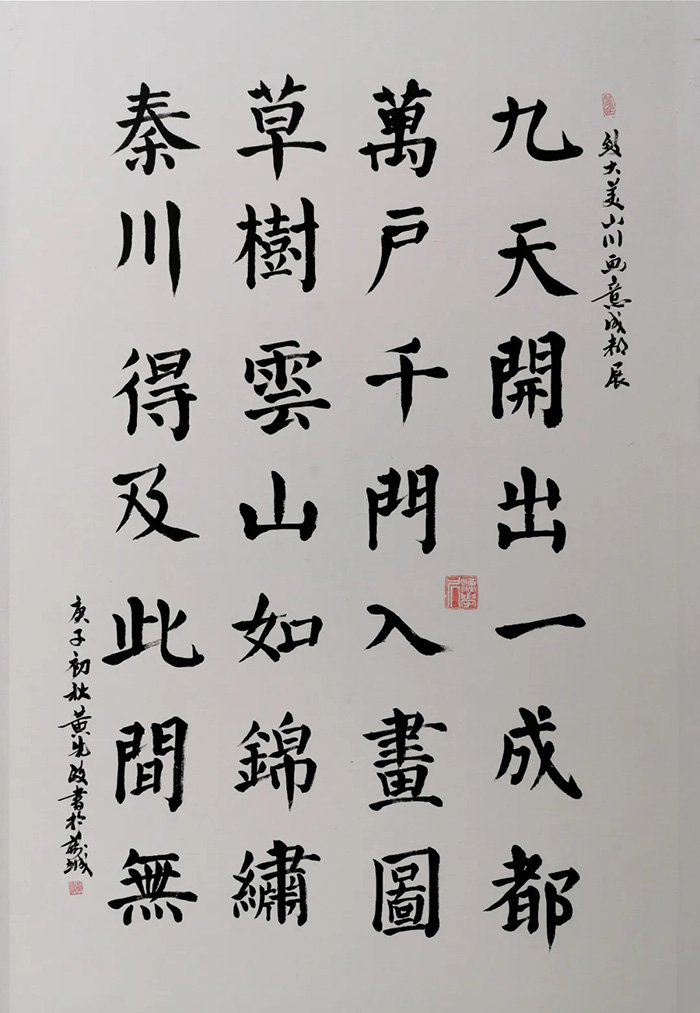 致大美山川画意成都展
九天開出一成都
萬戶千門入畫圖
草樹雲山如錦繡
秦川得及此間無
庚子初秋黄先政書於蓉城